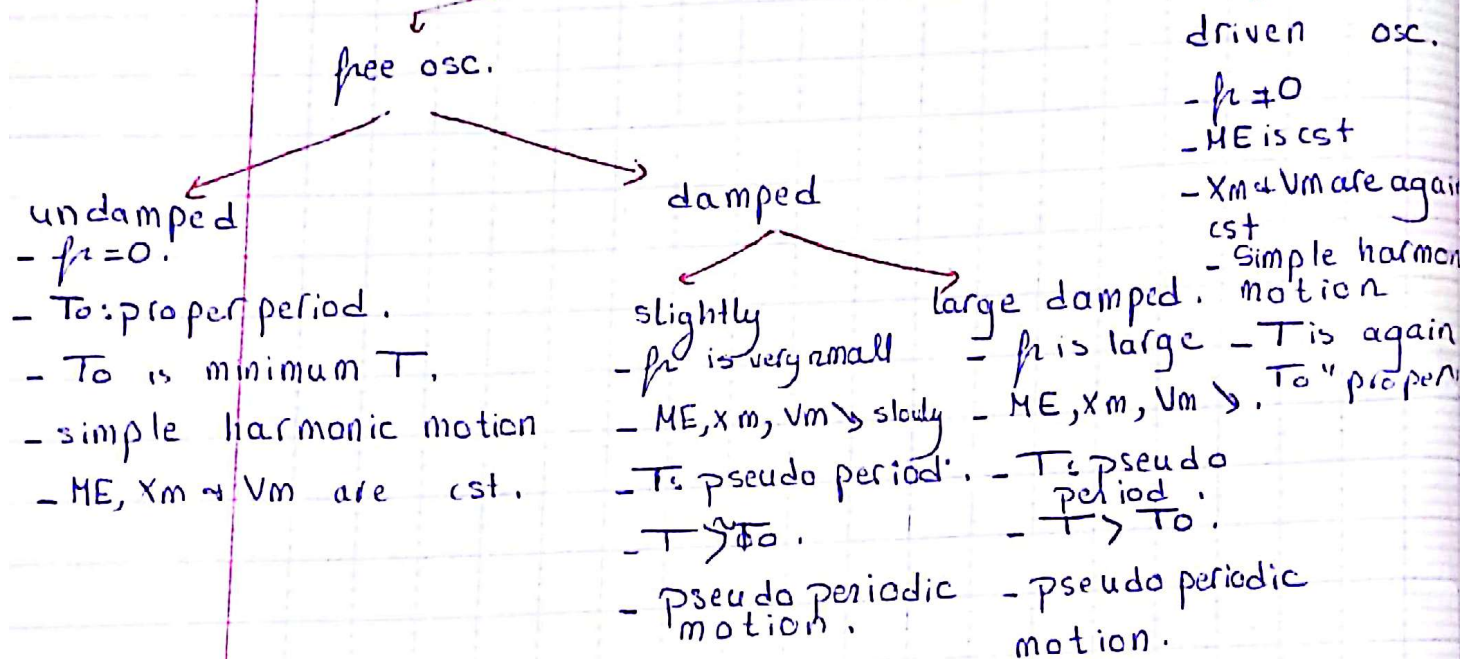 free osc.
undamped
- fr = 0.
- To : proper period.
- To is minimum T.
- simple harmonic motion
- ME, Xm & Vm are cst.
damped
slightly
- fr is very small
- ME, Xm, Vm ↘ slowly
- T: pseudo period.
- T ≳ To.
- pseudo periodic
motion.
large damped.
- fr is large
- ME, Xm, Vm ↘.
- T: pseudo
period.
- T > To.
- pseudo periodic
motion.
driven osc.
- fr ≠ 0
- ME is cst
- Xm & Vm are again
cst
- Simple harmon
motion
- T is again
To "proper